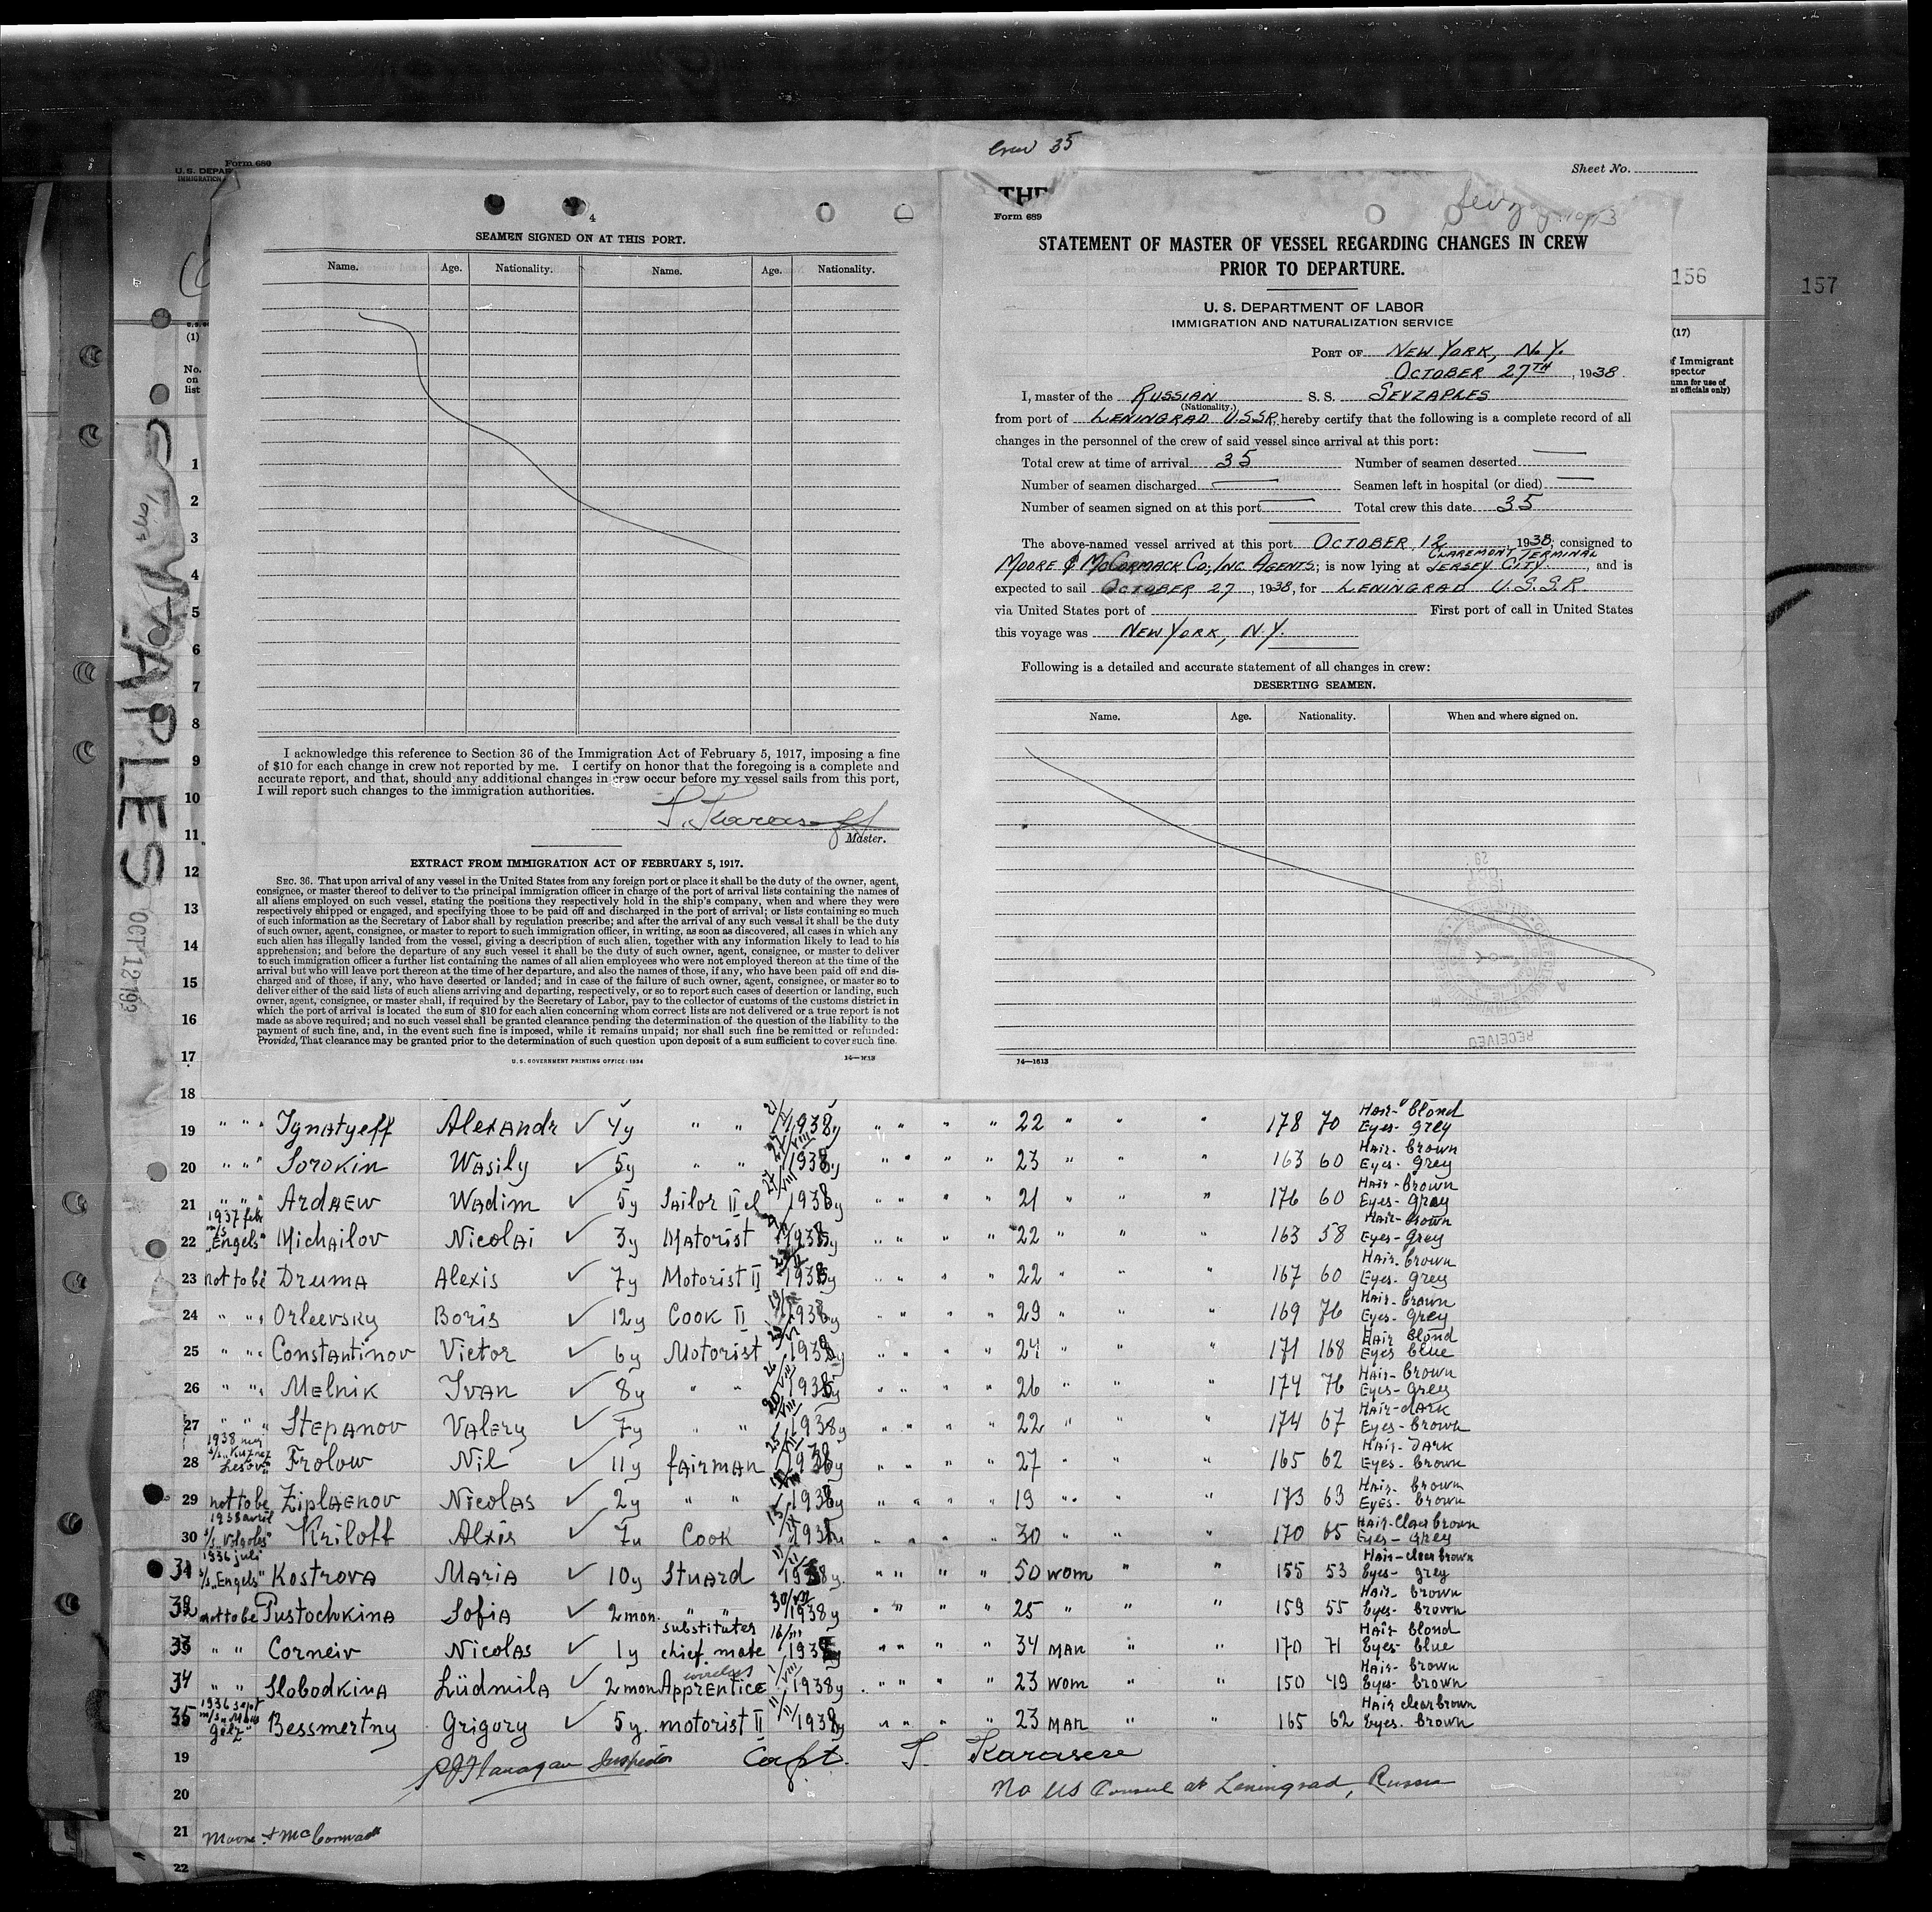 Crew 35
Sheet No.
Form 689
U. S. DEPAR
IMMIGRATION
4
SEAMEN SIGNED ON AT THIS PORT.
Name. Age. Nationality. Name. Age. Nationality.
I acknowledge this reference to Section 36 of the Immigration Act of February 5, 1917, imposing a fine
of $10 for each change in crew not reported by me. I certify on honor that the foregoing is a complete and
accurate report, and that, should any additional changes in crew occur before my vessel sails from this port,
I will report such changes to the immigration authorities.
Master.
EXTRACT FROM IMMIGRATION ACT OF FEBRUARY 5, 1917.
SEC. 36. That upon arrival of any vessel in the United States from any foreign port or place it shall be the duty of the owner, agent,
consignee, or master thereof to deliver to the principal immigration officer in charge of the port of arrival lists containing the names of
all aliens employed on such vessel, stating the positions they respectively hold in the ship's company, when and where they were
respectively shipped or engaged, and specifying those to be paid off and discharged in the port of arrival; or lists containing so much
of such information as the Secretary of Labor shall by regulation prescribe; and after the arrival of any such vessel it shall be the duty
of such owner, agent, consignee, or master to report to such immigration officer, in writing, as soon as discovered, all cases in which any
such alien has illegally landed from the vessel, giving a description of such alien, together with any information likely to lead to his
apprehension; and before the departure of any such vessel it shall be the duty of such owner, agent, consignee, or master to deliver
to such immigration officer a further list containing the names of all alien employees who were not employed thereon at the time of the
arrival but who will leave port thereon at the time of her departure, and also the names of those, if any, who have been paid off and dis-
charged and of those, if any, who have deserted or landed; and in case of the failure of such owner, agent, consignee, or master so to
deliver either of the said lists of such aliens arriving and departing, respectively, or so to report such cases of desertion or landing, such
owner, agent, consignee, or master shall, if required by the Secretary of Labor, pay to the collector of customs of the customs district in
which the port of arrival is located the sum of $10 for each alien concerning whom correct lists are not delivered or a true report is not
made as above required; and no such vessel shall be granted clearance pending the determination of the question of the liability to the
payment of such fine, and, in the event such fine is imposed, while it remains unpaid; nor shall such fine be remitted or refunded:
Provided, That clearance may be granted prior to the determination of such question upon deposit of a sum sufficient to cover such fine.
U. S. GOVERNMENT PRINTING OFFICE: 1934 14—1613
THE
Form 689
STATEMENT OF MASTER OF VESSEL REGARDING CHANGES IN CREW
PRIOR TO DEPARTURE.
U. S. DEPARTMENT OF LABOR
IMMIGRATION AND NATURALIZATION SERVICE
PORT OF NEW YORK, N.Y.
OCTOBER 27TH, 1938.
I, master of the RUSSIAN S. S. SEVZAPLES
(Nationality.)
from port of LENINGRAD U.S.S.R. hereby certify that the following is a complete record of all
changes in the personnel of the crew of said vessel since arrival at this port:
Total crew at time of arrival 35 Number of seamen deserted —
Number of seamen discharged — Seamen left in hospital (or died) —
Number of seamen signed on at this port — Total crew this date 35
The above-named vessel arrived at this port OCTOBER 12, 1938; consigned to
CLAREMONT TERMINAL
MOORE & McCORMACK CO; INC. AGENTS; is now lying at JERSEY CITY, and is
expected to sail OCTOBER 27, 1938, for LENINGRAD U.S.S.R.
via United States port of First port of call in United States
this voyage was NEW YORK, N.Y.
Following is a detailed and accurate statement of all changes in crew:
DESERTING SEAMEN.
Name. Age. Nationality. When and where signed on.
RECEIVED
14—1613
156
157
(17)
f Immigrant
spector
umn for use of
nt officials only)
(1)
No.
on
list
APLES
OCT 12 193
1
2
3
4
5
6
7
8
9
10
11
12
13
14
15
16
17
18
19 " " " Ignatyeff Alexandr ✓ 4y " " 1938y " " " " 22 " " " 178 70 Hair- blond Eyes- grey
20 " " " Sorokin Wasily ✓ 5y " " 1938y " " " " 23 " " " 163 60 Hair- brown Eyes- grey
21 " " " Ardaew Wadim ✓ 5y Sailor II cl 1938y " " " " 21 " " " 176 60 Hair- brown Eyes- gray
22 1937 febr m/s "Engels" Michailov Nicolai ✓ 3y Matorist 1938y " " " " 22 " " " 163 58 Hair- brown Eyes- grey
23 not to be Druma Alexis ✓ 7y Motorist II 1938y " " " " 22 " " " 167 60 Hair- brown Eyes- grey
24 " " " Orleevsky Boris ✓ 12y Cook II 1938y " " " " 29 " " " 169 76 Hair- brown Eyes- grey
25 " " " Constantinov Victor ✓ 6y Motorist 1938y " " " " 24 " " " 171 168 Hair blond Eyes blue
26 " " " Melnik Ivan ✓ 8y " " 1938y " " " " 26 " " " 174 76 Hair- brown Eyes- grey
27 " " " Stepanov Valery ✓ 7y " " 1938y " " " " 22 " " " 174 67 Hair- dark Eyes- brown
28 1938 Frolow Nil ✓ 11y fairman 1938y " " " " 27 " " " 165 62 Hair- dark Eyes- brown
29 not to be Ziplaenov Nicolas ✓ 2y " " 1938y " " " " 19 " " " 173 63 Hair- brown Eyes- brown
30 1938 avril Kriloff Alxis ✓ 7y Cook 1938y " " " " 30 " " " 170 65 Hair- Clear brown Eyes- grey
31 1936 juli s/s "Engels" Kostrova Maria ✓ 10y Stuard 1938y. " " " " 50 wom " " 155 53 Hair- clear brown Eyes- grey
32 not to be Pustochkina Sofia ✓ 2 mon. " " 30/VII 1938y " " " " 25 " " " 159 55 Hair- brown Eyes- brown
33 " " Corneiv Nicolas ✓ 1y substitutes chief mate 1938y " " " " 34 man " " 170 71 Hair blond Eyes- blue
34 " " Slobodkina Lüdmila ✓ 2 mon wireless Apprentice 1/VIII 1938y " " " " 23 wom " " 150 49 Hair- brown Eyes- brown
35 1936 sept Bessmertny Grigory ✓ 5y. motorist II 11/II 1938y " " " " 23 man " " 165 62 Hair clear brown Eyes. brown
19 P J Flanagan Inspector Capt.
20 No US Consul at Leningrad, Russia
21
22